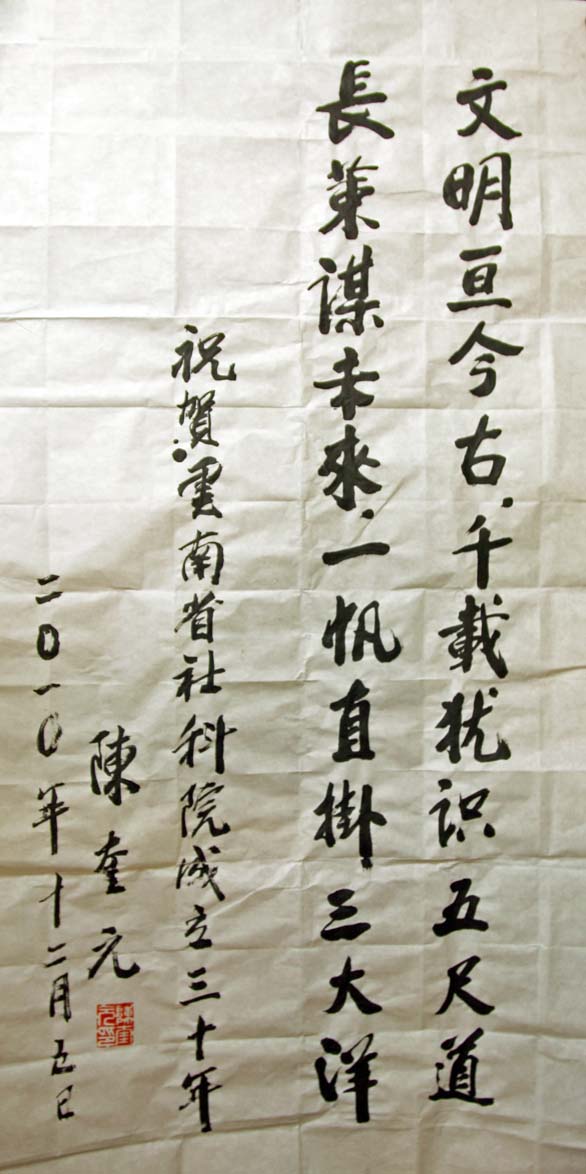 文明亘今古,千载犹识五尺道
長策謀未來,一帆直掛三大洋
祝賀雲南省社科院成立三十年
陳奎元
二〇一〇年十二月五日
陳奎元印